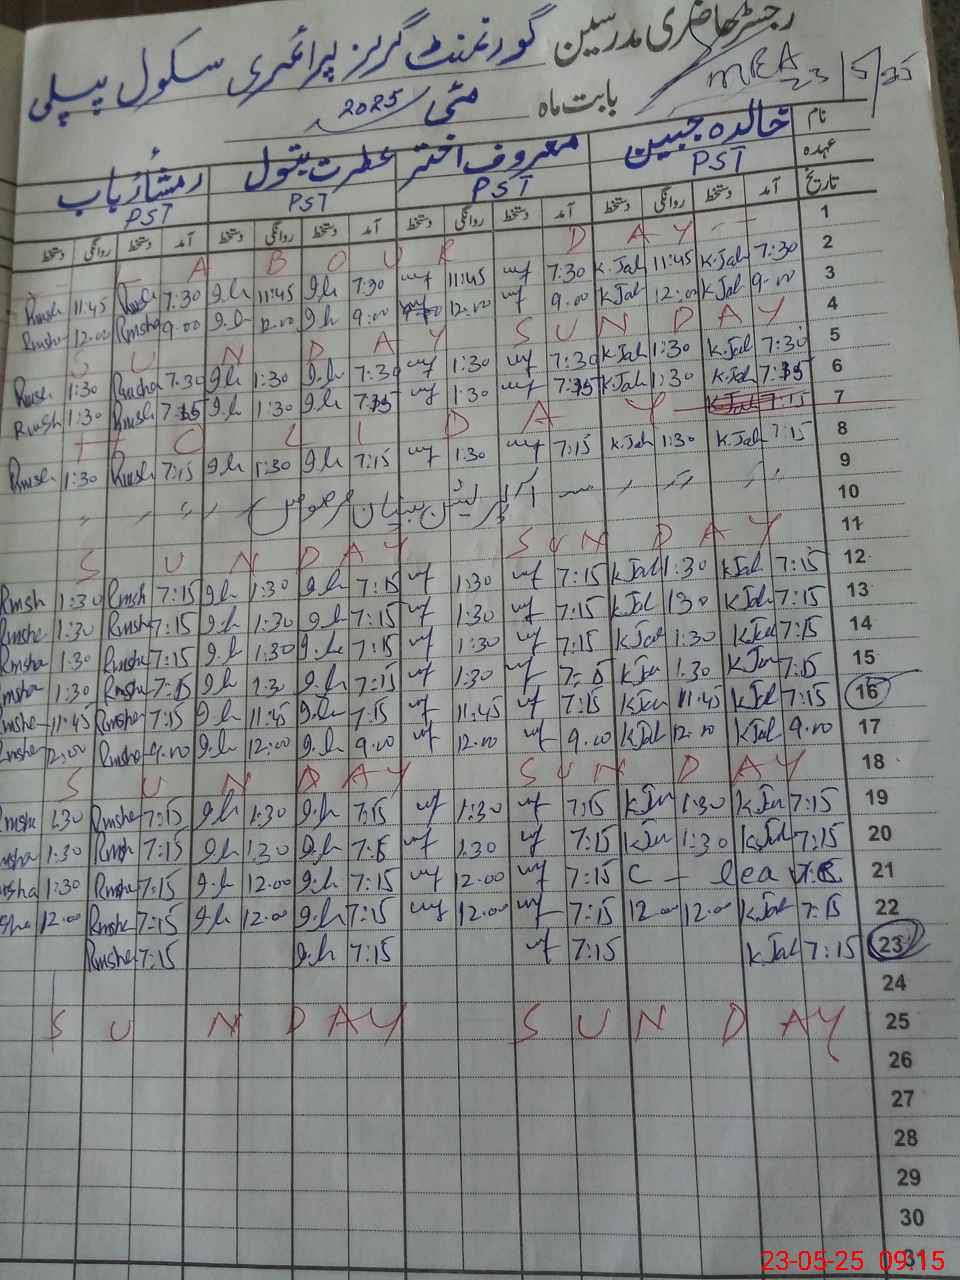 رجسٹر حاضری مدرسین گورنمنٹ گرلز پرائمری سکول پیپلی
MEA 23/5/25
بابت ماہ مئی 2025
نام خالدہ جبین معروف اختر عطرت بتول رمشا رباب
عہدہ PST PST PST PST
تاریخ آمد دستخط روانگی دستخط آمد دستخط روانگی دستخط آمد دستخط روانگی دستخط آمد دستخط روانگی دستخط
L A B O U R D A Y 1
Rmsh 11:45 Rmsh 7:30 g.b 11:45 g.b 7:30 mf 11:45 mf 7:30 K.Jab 11:45 K.Jab 7:30 2
Rmsha 12:00 Rmsha 9:00 g.b 12:00 g.b 9:00 12:00 mf 9:00 K.Jab 12:00 K.Jab 9:00 3
S U N D A Y S U N D A Y 4
Rmsh 1:30 Rmsha 7:30 g.b 1:30 g.b 7:30 mf 1:30 mf 7:30 K.Jab 1:30 K.Jab 7:30 5
Rmsh 1:30 Rmsh 7:15 g.b 1:30 g.b 7:15 mf 1:30 mf 7:15 K.Jab 1:30 K.Jab 7:15 6
H O L I D A Y K.Jab 7:15 7
Rmsh 1:30 Rmsh 7:15 g.b 1:30 g.b 7:15 mf 1:30 mf 7:15 K.Jab 1:30 K.Jab 7:15 8
9
10
S U N D A Y S U N D A Y 11
Rmsh 1:30 Rmsh 7:15 g.b 1:30 g.b 7:15 mf 1:30 mf 7:15 K.Jab 1:30 K.Jab 7:15 12
Rmsha 1:30 Rmsh 7:15 g.b 1:30 g.b 7:15 mf 1:30 mf 7:15 K.Jab 1:30 K.Jab 7:15 13
Rmsha 1:30 Rmsha 7:15 g.b 1:30 g.b 7:15 mf 1:30 mf 7:15 K.Jab 1:30 K.Jab 7:15 14
Rmsha 1:30 Rmsha 7:15 g.b 1:30 g.b 7:15 mf 1:30 mf 7:15 K.Jab 1:30 K.Jab 7:15 15
Rmsha 11:45 Rmsha 7:15 g.b 11:45 g.b 7:15 mf 11:45 mf 7:15 K.Jab 11:45 K.Jab 7:15 16
Rmsha 12:00 Rmsha 9:00 g.b 12:00 g.b 9:00 mf 12:00 mf 9:00 K.Jab 12:00 K.Jab 9:00 17
S U N D A Y S U N D A Y 18
Rmsha 1:30 Rmsha 7:15 g.b 1:30 g.b 7:15 mf 1:30 mf 7:15 K.Jab 1:30 K.Jab 7:15 19
Rmsha 1:30 Rmsh 7:15 g.b 1:30 g.b 7:15 mf 1:30 mf 7:15 K.Jab 1:30 K.Jab 7:15 20
Rmsha 1:30 Rmsha 7:15 g.b 12:00 g.b 7:15 mf 12:00 mf 7:15 C - leave 21
Rmsha 12:00 Rmsha 7:15 g.b 12:00 g.b 7:15 mf 12:00 mf 7:15 12:00 12:00 K.Jab 7:15 22
Rmsha 7:15 g.b 7:15 mf 7:15 K.Jab 7:15 23
24
S U N D A Y S U N D A Y 25
26
27
28
29
30
31
23-05-25 09:15